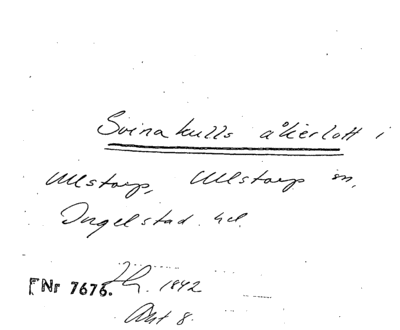 Svinakulls åkerlott i
Ullstorp, Ullstorp sn,
Ingelstad hd.
FNr 7676. Th. 1842
Akt 8.